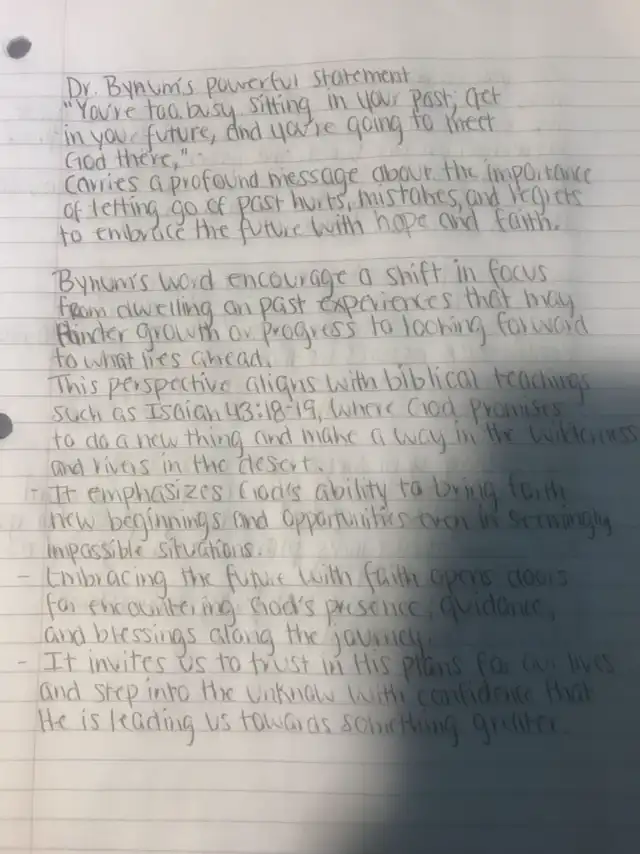 Dr. Bynum's powerful statement
"You're too busy sitting in your past, get
in your future, and you're going to meet
God there,"
carries a profound message about the importance
of letting go of past hurts, mistakes, and regrets
to embrace the future with hope and faith.
Bynum's word encourage a shift in focus
from dwelling on past experiences that may
hinder growth or progress to looking forward
to what lies ahead.
This perspective aligns with biblical teachings
such as Isaiah 43:18-19, where God promises
to do a new thing and make a way in the wilderness
and rivers in the desert.
- It emphasizes God's ability to bring forth
new beginnings and opportunities even in seemingly
impossible situations.
- Embracing the future with faith opens doors
for encountering God's presence, guidance,
and blessings along the journey.
- It invites us to trust in His plans for our lives
and step into the unknow with confidence that
He is leading us towards something greater.